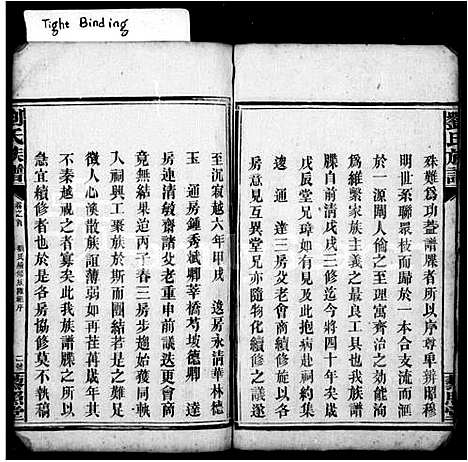 Tight Binding
劉氏族譜
殊難爲功蓋譜牒者所以序尊卑辨昭穆
明世系聯眾枝而歸於一本合支流而匯
於一源闡人倫之至理寓齊治之効能洵
爲維繫家族主義之最良工具也我族譜
牒自前清戊戌三修迄今將四十年矣歲
戊辰堂兄璋如有見及此抱病赴祠約集
逵三房父老會商續修旋以各
房意見互異堂兄亦隨物化續修之議遂
至沉寂越六年甲戌 逸房永清華林德
玉 通房鍾秀斌卿莘橋芍坡德卿 達
房連清敏齋諸父老重申前議迭更會商
竟無結果迨丙子春三房步趨始獲同軌
入祠興工聚族於斯而團結若是之難足
徵人心渙散族誼薄弱如再荏苒歲年其
不秦越視之者寡矣此我族譜牒之所以
急宜續修者也於是各房協修莫不執稿
劉氏族譜
卷之首
二
藜照堂